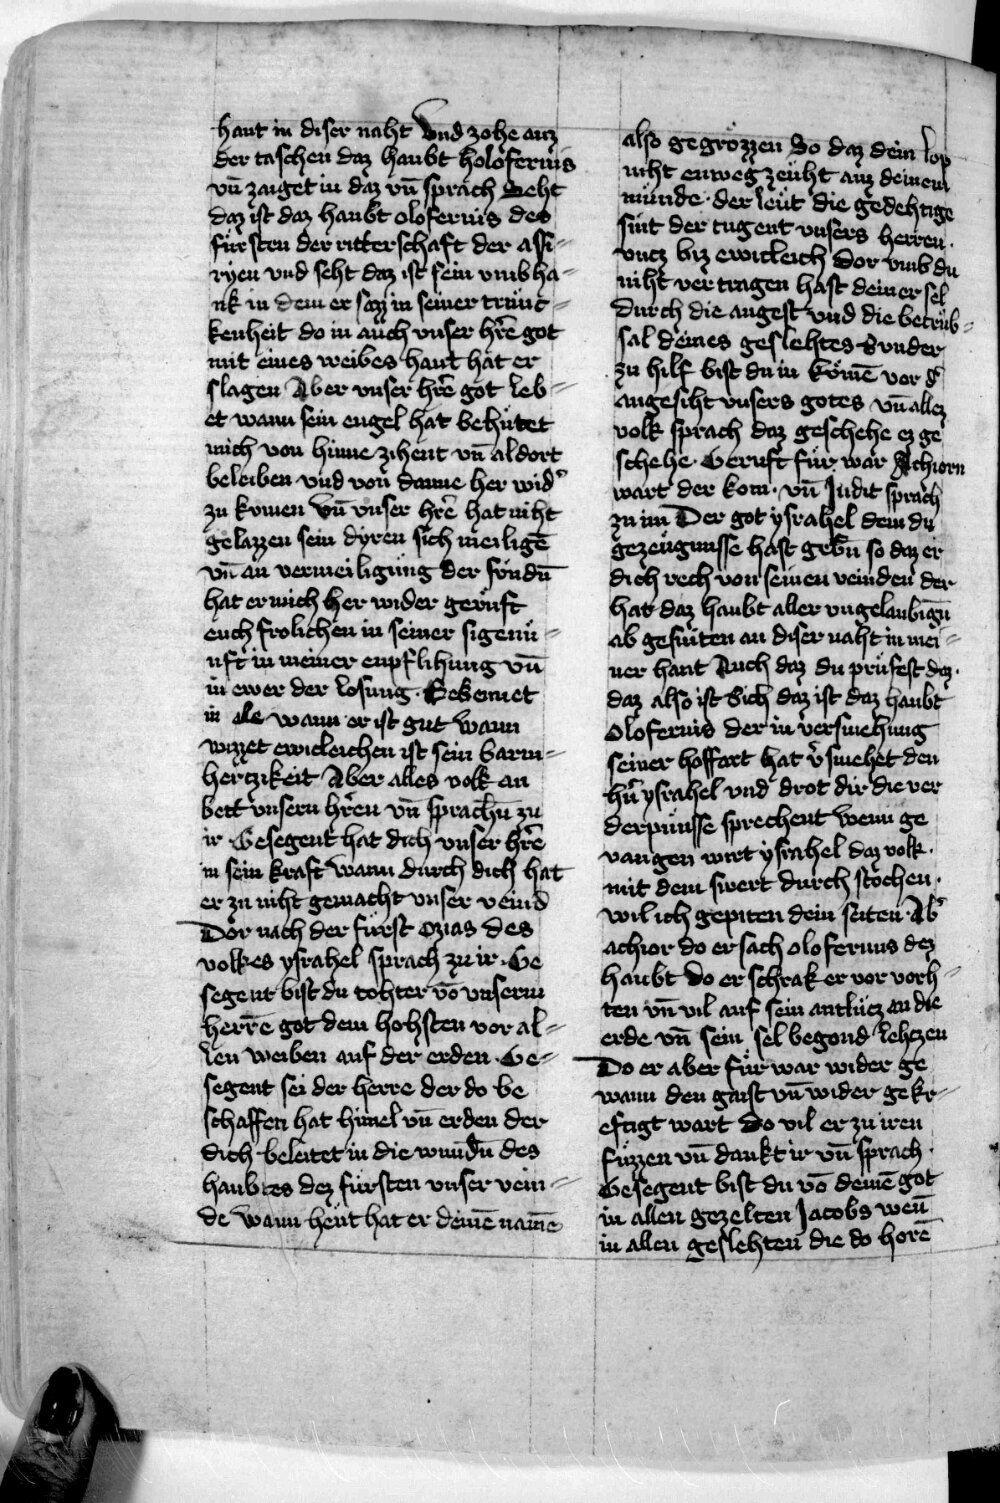 hant in diser naht Vnd zohe auz
der taschen daz haubt holofernis
vn̄ zaiget in daz vn̄ sprach Seht
daz ist daz haubt olofernis des
fürsten der ritterschaft der assi=
ryen vnd seht daz ist sein vmbha=
nk in dem er saz in seiner trunc=
kenheit do in auch vnser hr̄e got
mit eines weibes hant hat er
slagen Aber vnser hr̄e got leb=
et wann sein engel hat behütet
mich von hinne zihent vn̄ aldort
beleiben vnd von danne her wid'
zu kumen Vn̄ vnser hr̄e hat niht
gelazzen sein dyren sich meiligē
vn̄ an vermeiligung der sündn̄
hat er mich her wider geruft
euch frolichen in seiner sigenü=
nft in meiner enpflihung vn̄
in ewer der losung. Bekennet
in ale wann er ist gut wann
wizzet ewicleichen ist sein barm=
hertzikeit Aber alles volk an
bett vnsern hr̄en vn̄ sprachn̄ zu
ir Gesegent hat dich vnser hr̄e
in sein kraft wann durch dich hat
er zu niht gemacht vnser veind
Dor nach der fürst ozias des
volkes ysrahel sprach zu ir. Ge
segent bist du tohter vō vnserm
herrē got dem hohsten vor al=
len weiben auf der erden. Ge=
segent sei der herre der do be
schaffen hat himel vn̄ erden der
dich beleitet in die wundn̄ des
haubtes dez fürsten vnser vein=
de wann heüt hat er deinē namē
also gegrözzen So daz dein lop
niht enweg zeüht auz deinem
munde. der leüt die gedehtige
sint der tugent vnsers herren.
vncz biz ewicleich Dor vmb du
niht vertragen hast deiner sel
durch die angest vnd die betrüb=
sal deines geslehtes Sunder
zu hilf bist du in kömē vor d'
angesiht vnsers gotes vn̄ allez
volk sprach daz geschehe ez ge
schehe. Geruft für war Achiorn
wart der kom. vn̄ Judit sprach
zu im Der got ysrahel dem du
gezeügnusse hast gebn̄ so daz er
dich rech von seinen veinden der
hat daz haubt aller vngelaubign̄
ab gesniten an diser naht in mei=
ner hant Auch daz du prüfest daz.
daz also ist Sich daz ist daz haubt
Olofernis der in versmehung
seiner hoffart hat v'smehet den
hn̄ ysrahel vnd drot dir die ver
derpnüsse sprechent wenn ge
vangen wirt ysrahel daz volk.
mit dem swert durch stochen.
wil ich gepiten dein seiten. Ab'
achior do er sach olofernus dez
haubt do er schrak er vor vorh=
ten vn̄ vil auf sein antlücz an die
erde vn̄ sein sel begond lehczen
Do er aber für war wider ge
wann den gaist vn̄ wider gekr=
eftigt wart do vil er zu iren
füzzen vn̄ dankt ir vn̄ sprach.
Gesegent bist du vō deinē got
in allen gezelten Jacobs wen̄
in allen geslehten die do horē